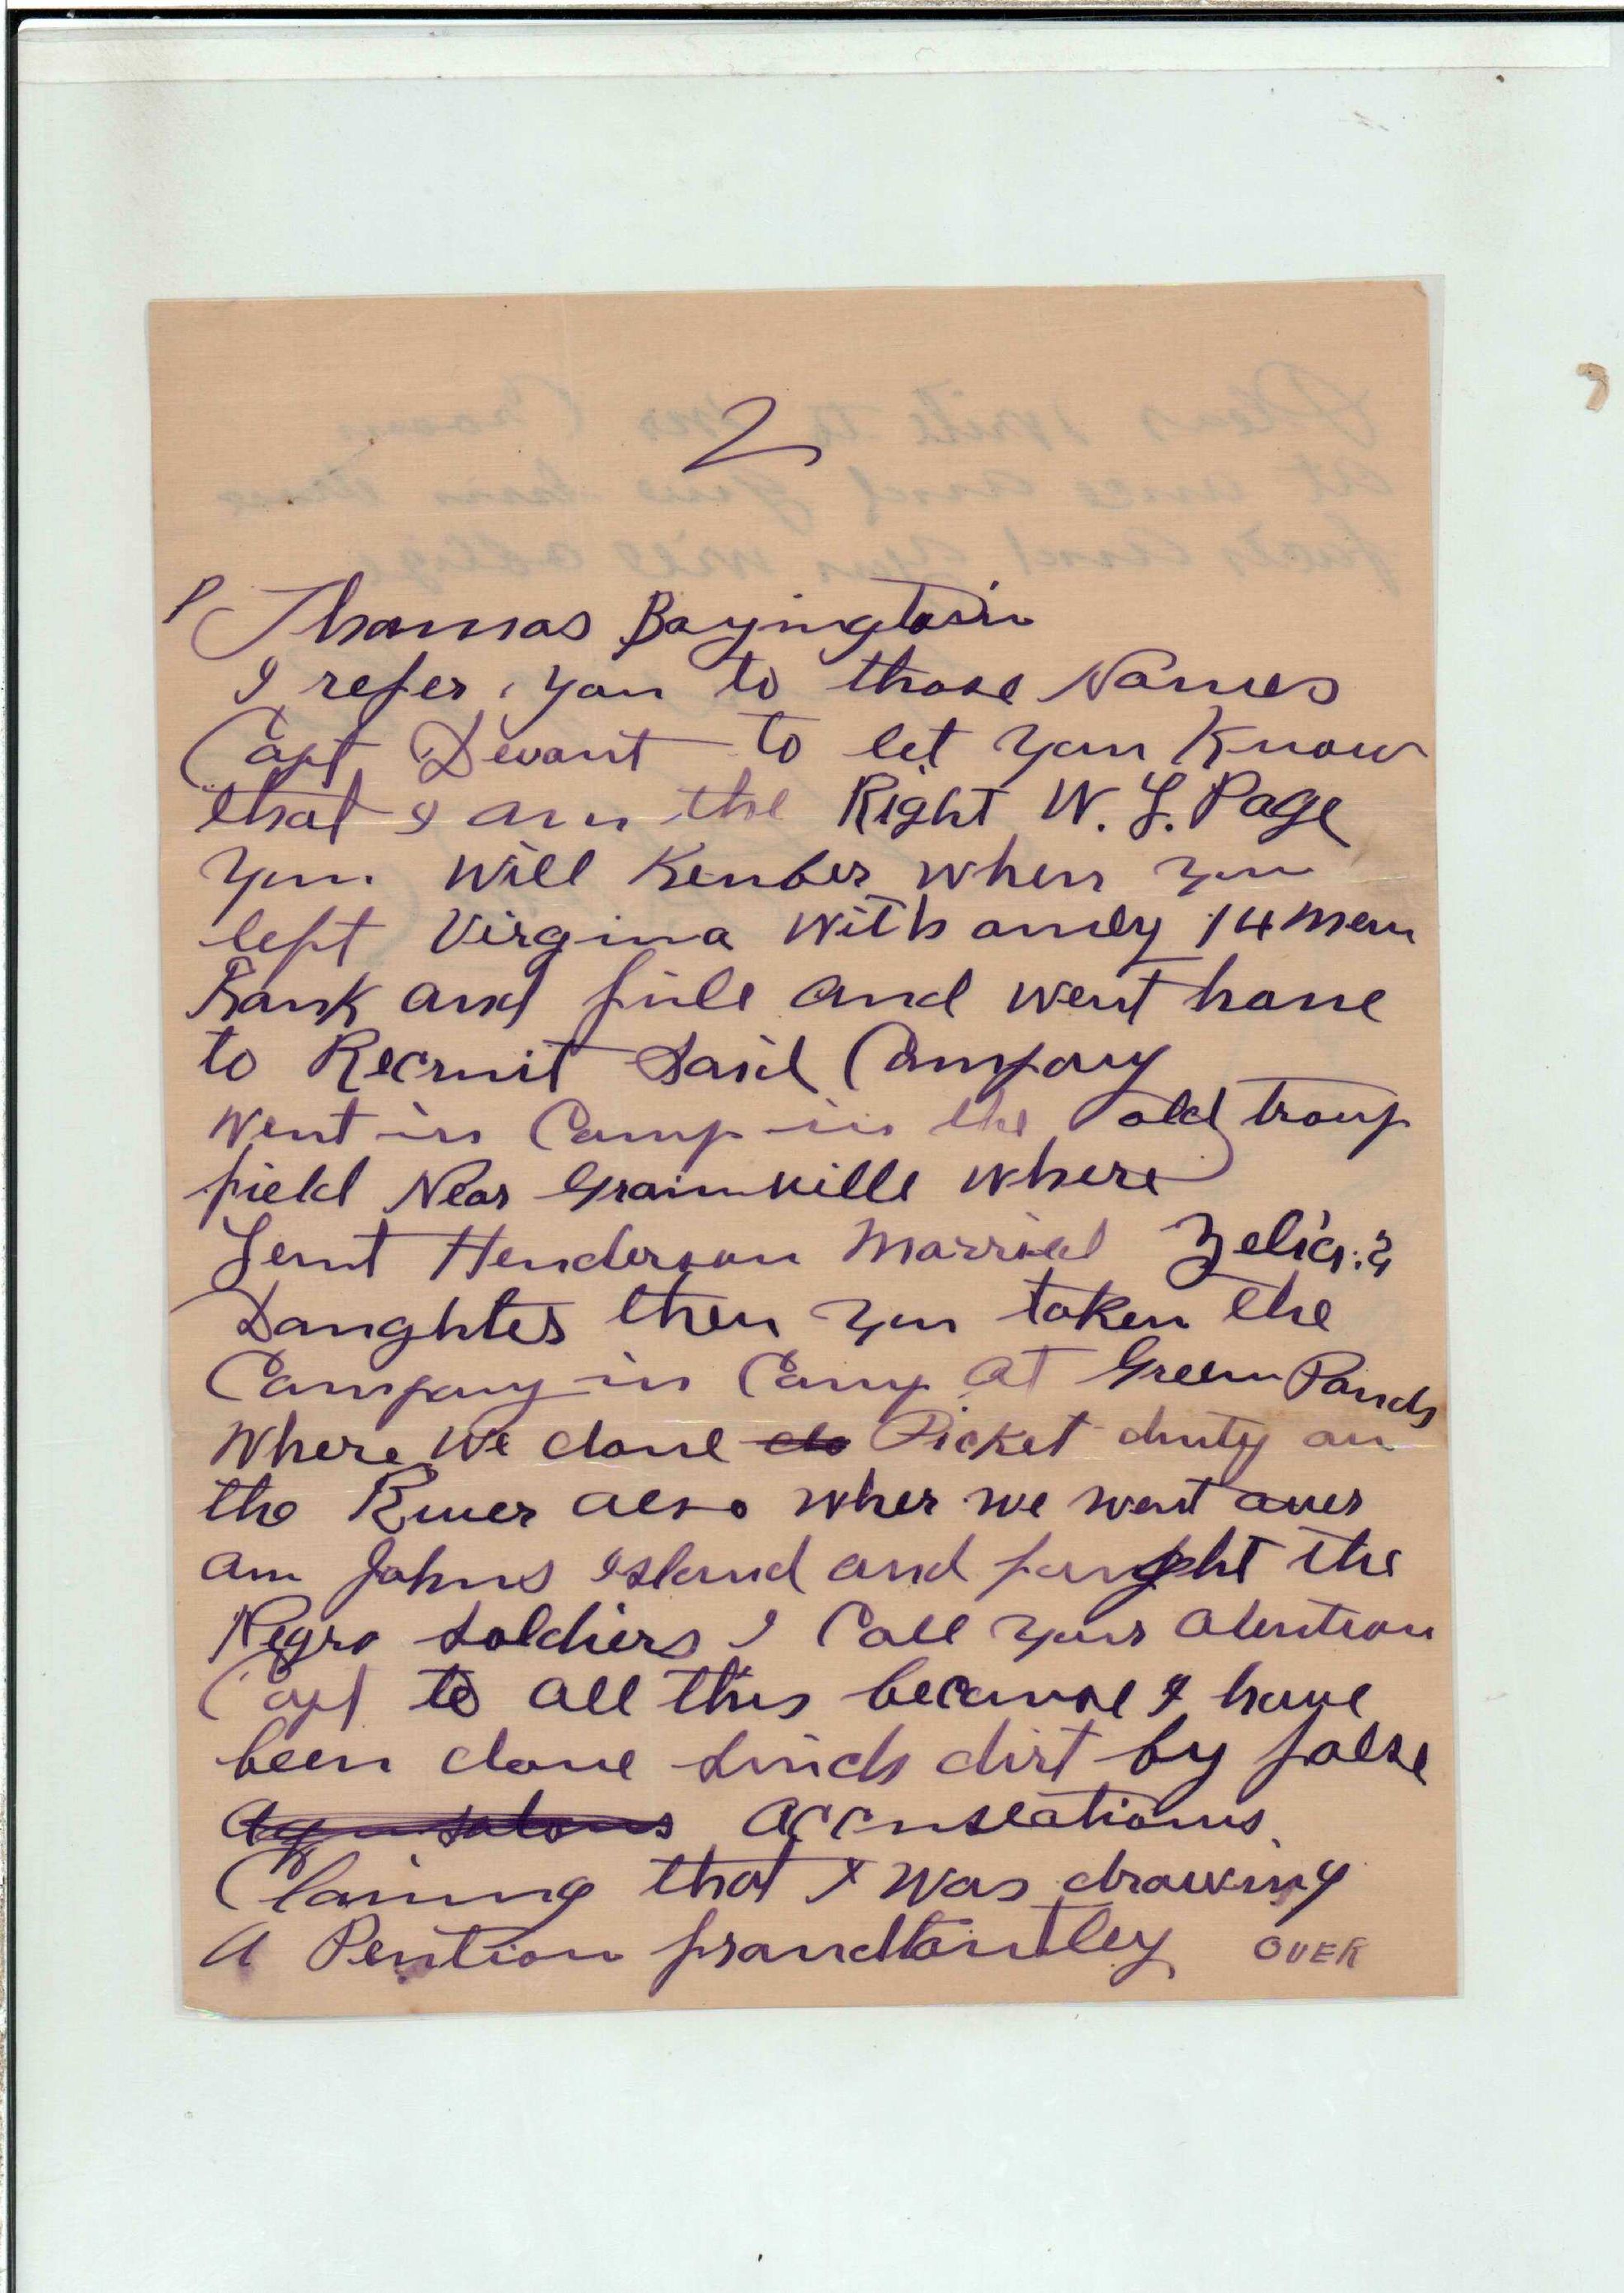 2
P Thomas Boyingtoin
I refer you to those Names
Capt Devant to let you Know
that I am the Right W. L. Page
you will Rember when you
left Virgina with only 14 men
Rank and file and went home
to Recruit Said Company
went in Camp in the old troup
field Near Grainville where
Leut Henderson Married
Daughter then you taken the
Company in Camp at Green Ponds
where we done do Picket duty on
the River also wher we went over
on Johns Island and fought the
Negro Soldiers I Call your atention
Capt to all this because I have
been done Such dirt by false
accuseations
Claming that I was drawing
A Pention frandtantley OVER